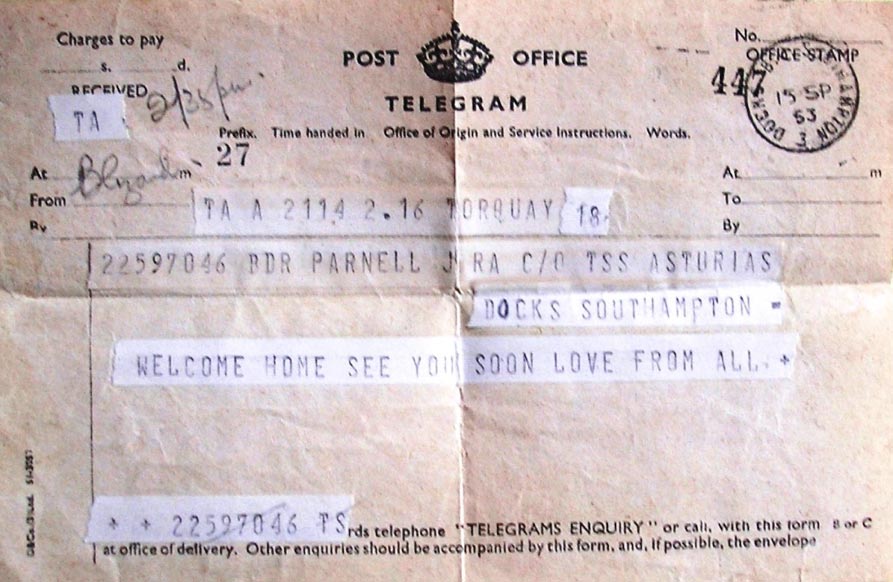 Charges to pay
s. d.
POST OFFICE
No.
OFFICE STAMP
RECEIVED
2/35 pm.
TELEGRAM
447
15 SP
53
DOCKS SOUTHAMPTON
TA
Prefix. Time handed in Office of Origin and Service Instructions. Words.
27
At m
From
By
At m
To
By
TA A 2114 2.16 TORQUAY 18
22597046 BDR PARNELL J RA C/O TSS ASTURIAS
DOCKS SOUTHAMPTON =
WELCOME HOME SEE YOU SOON LOVE FROM ALL +
+ + 22597046 TS
rds telephone "TELEGRAMS ENQUIRY" or call, with this form B or C
at office of delivery. Other enquiries should be accompanied by this form, and, if possible, the envelope